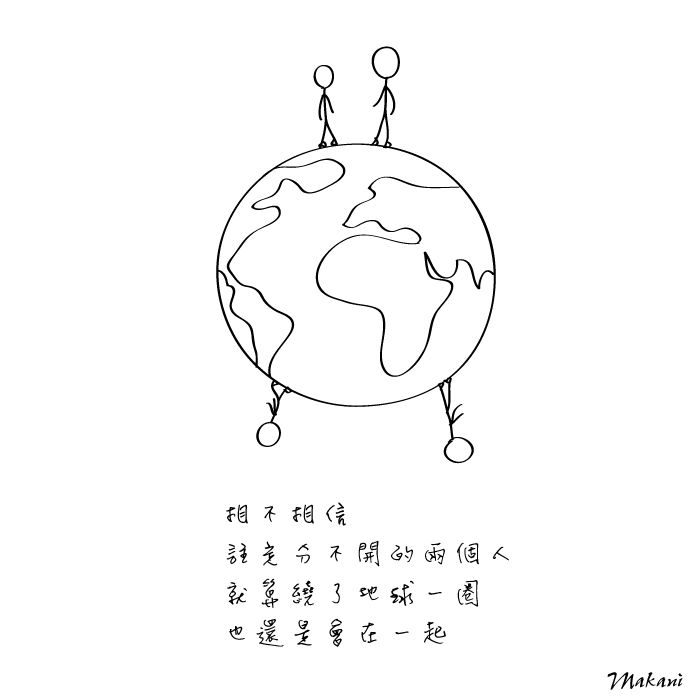 相不相信
註定分不開的兩個人
就算繞了地球一圈
也還是會在一起
Makani